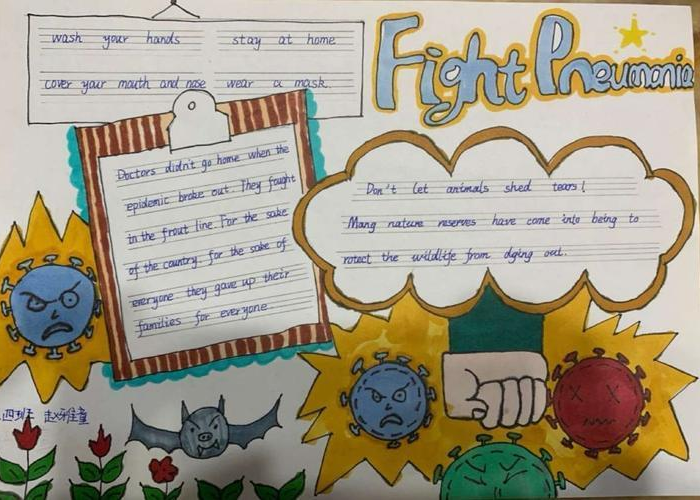 Fight Pneumonia
wash your hands stay at home
cover your mouth and nose wear a mask.
Doctors didn't go home when the
epidemic broke out. They foght
in the frout line. For the sake
of the country. for the sake of
everyone they gave up their
families for everyone.
Don't let animals shed tears!
Mang nature reserves have come into being to
rotect the wildlife from dging out.
四班